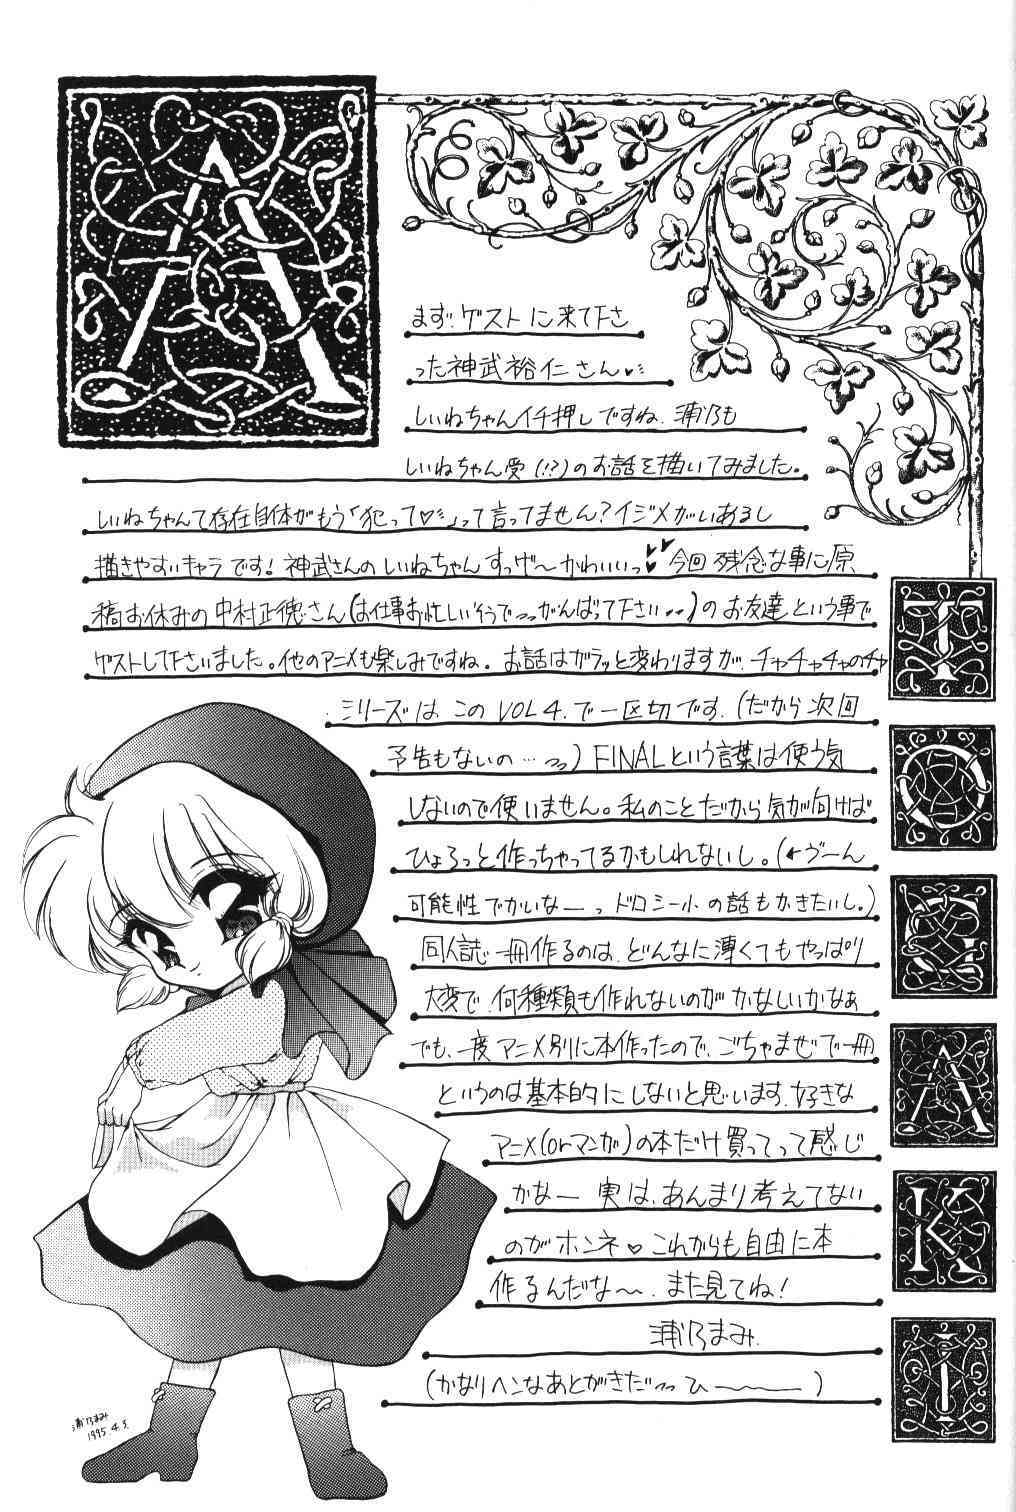 A
まず、ゲストに来て下さ
った神武裕仁さん
しいねちゃんイチ押しですね、浦乃も
しいねちゃん受(!?)のお話を描いてみました。
しいねちゃんて存在自体がもう「犯って♡」って言ってません?イジメがいあるし
描きやすいキャラです!神武さんのしいねちゃんすっげ〜かわいいっ♥今回残念な事に原
稿お休みの中村正徳さん(お仕事お忙しいそうでがんばって下さい)のお友達という事で
ゲストして下さいました。他のアニメも楽しみですね。お話はガラッと変わりますが、チャチャチャのチャ
シリーズはこのVOL4.で一区切です。(だから次回
予告もないの…)FINALという言葉は使う気
しないので使いません。私のことだから気が向けば
ひょろっと作っちゃってるかもしれないし。(←ゔーん
可能性でかいなーっドロシー小の話もかきたいし。)
同人誌一冊作るのは、どんなに薄くてもやっぱり
大変で、何種類も作れないのがかなしいかなぁ
でも、一度アニメ別に本作ったので、ごちゃまぜで一冊
というのは基本的にしないと思います、好きな
アニメ(orマンガ)の本だけ買ってって感じ
かなー 実は、あんまり考えてない
のがホンネ♡これからも自由に本
作るんだな〜、また見てね!
浦乃まみ.
(かなりヘンなあとがきだ ひ〜)
T
O
G
A
K
I
浦乃まみ
1995.4.3.